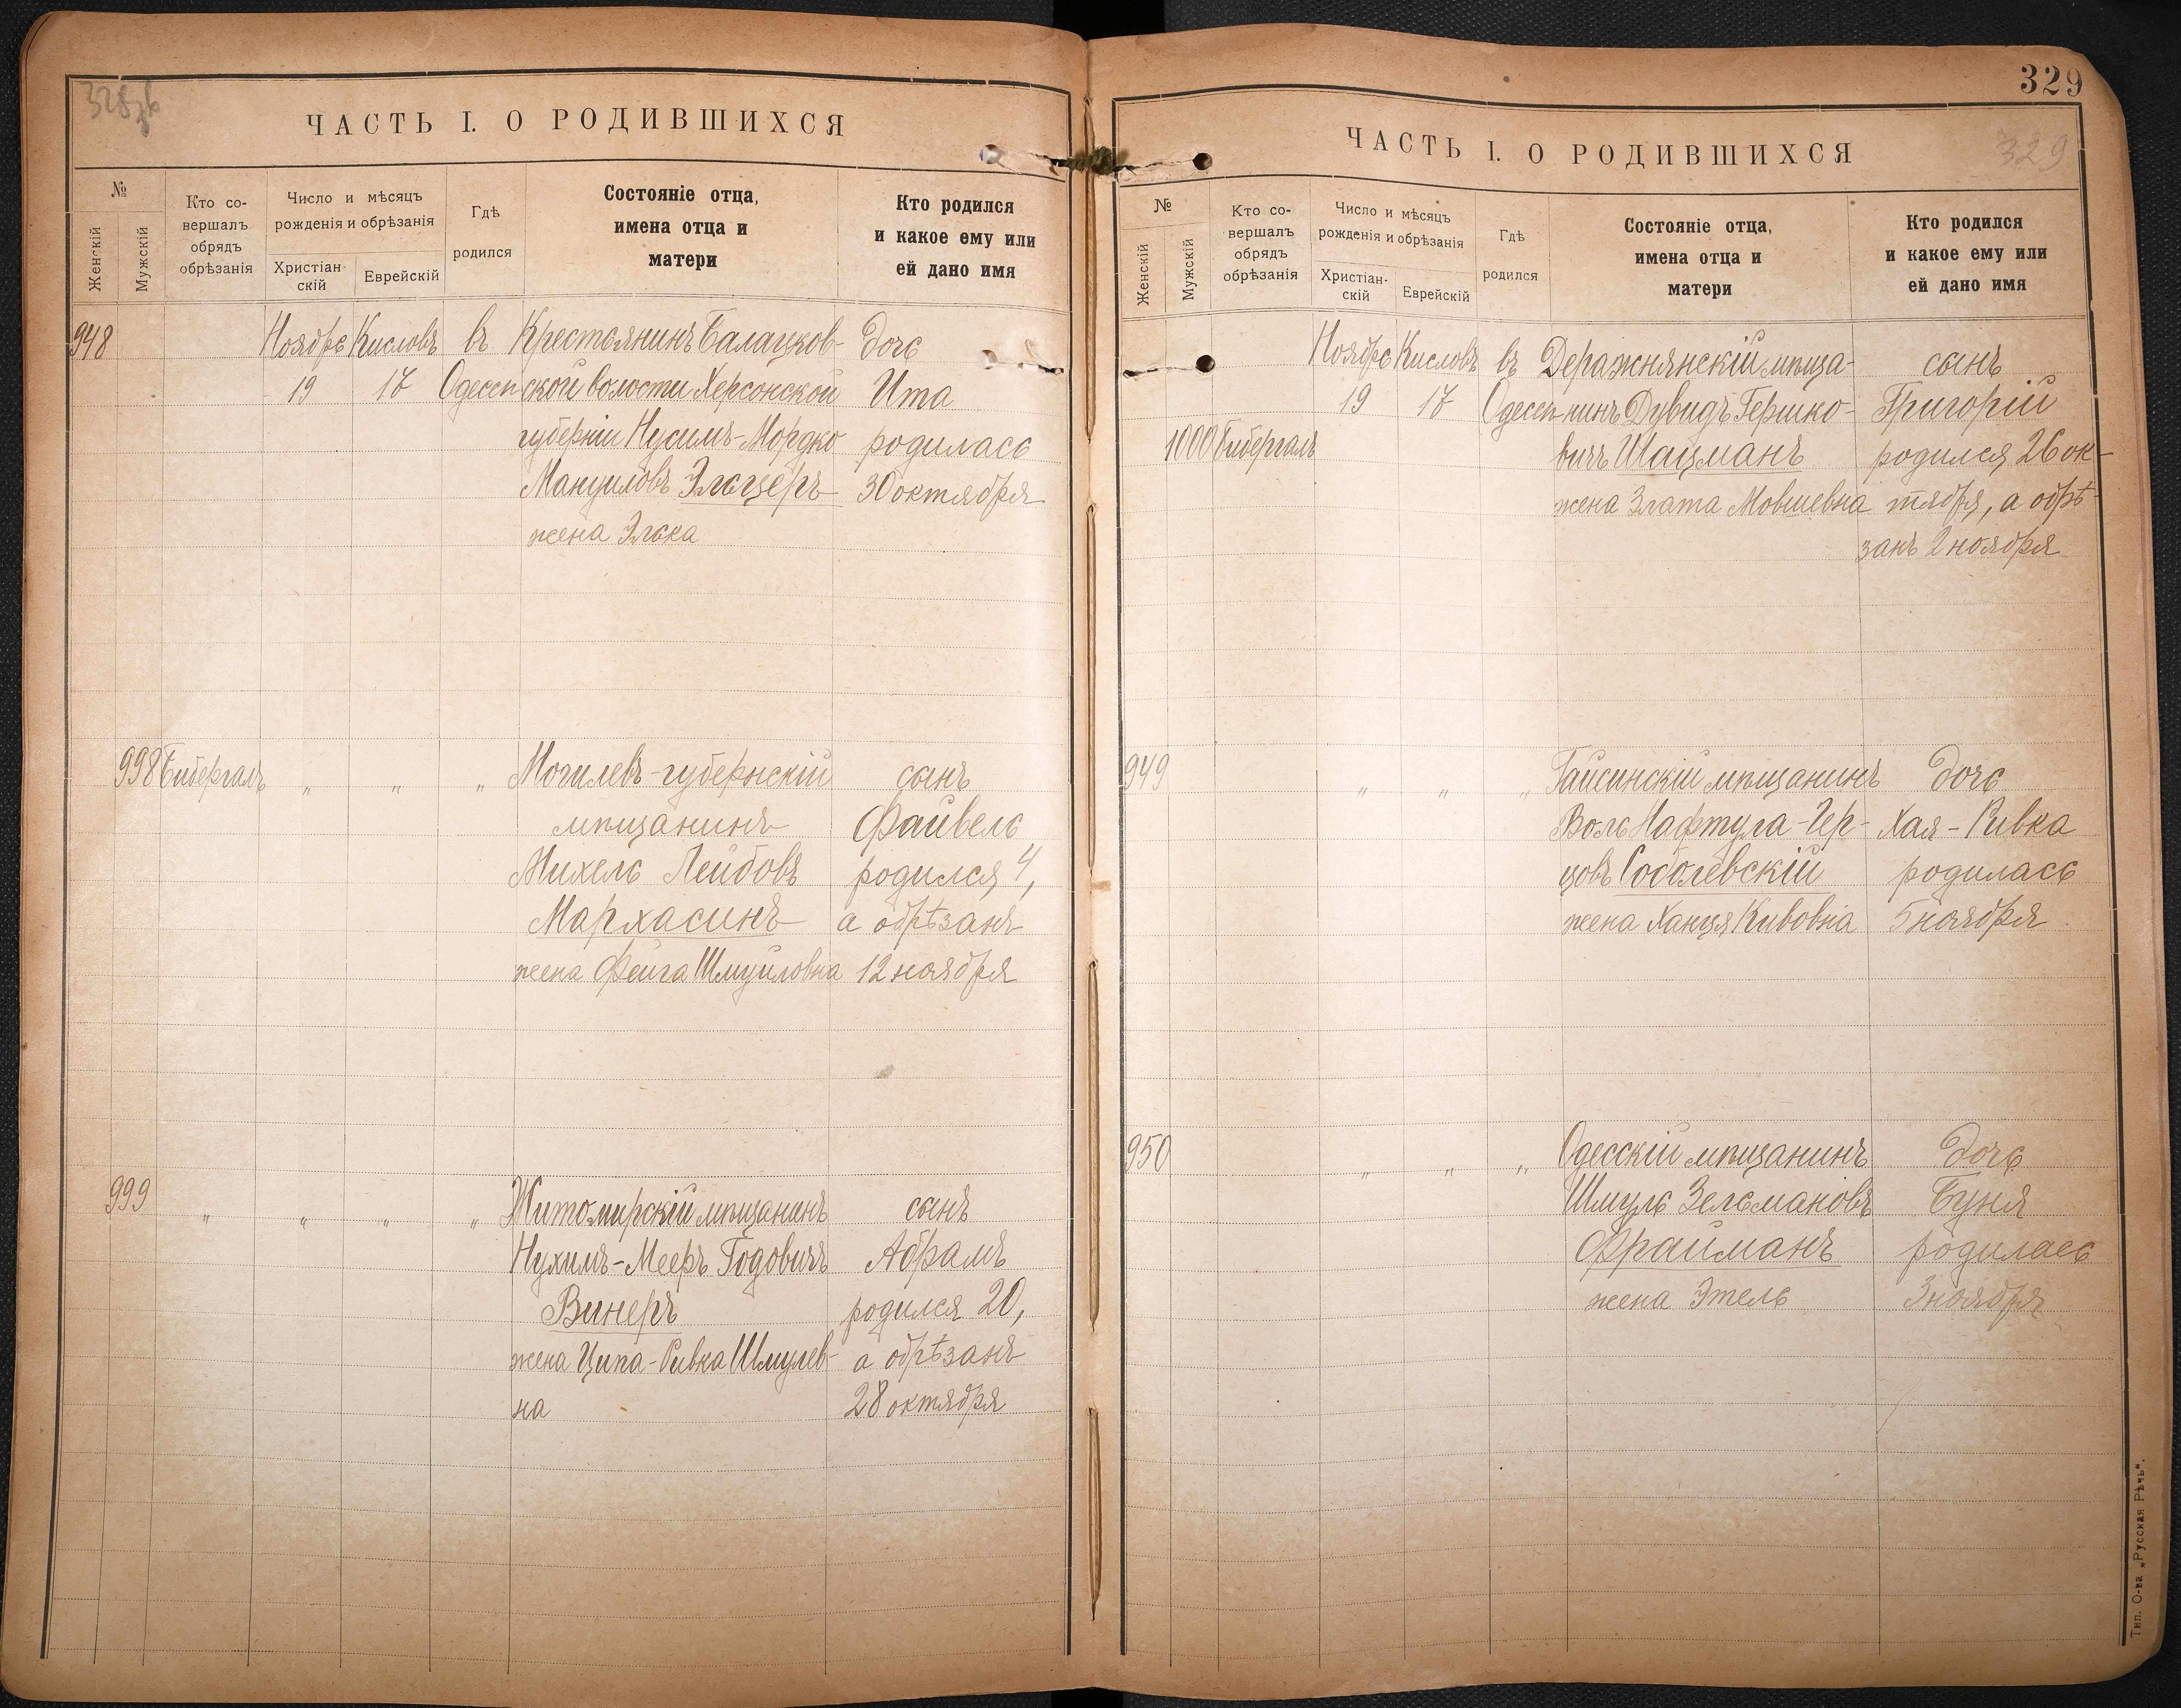 ЧАСТЬ I. О РОДИВШИХСЯ
№
Женскій
Мужскій
Кто со-
вершалъ
обрядъ
обрѣзанія
Число и мѣсяцъ
рожденія и обрѣзанія
Христіан-
скій
Еврейскій
Гдѣ
родился
Состояніе отца,
имена отца и
матери
Кто родился
и какое ему или
ей дано имя
948 Ноябрь Кисловъ въ Крестьянинъ Балацков- дочь
19 17 Одессѣ ской волости Херсонской Ита
губерніи Нусимъ-Мордко родилась
Мануиловъ Эльцеръ 30 октября
жена Элька
998 Бибергалъ " " " Могилевъ-губернскій сынъ
мѣщанинъ Файвель
Михель Лейбовъ родился 4,
Мархасинъ а обрѣзанъ
жена Фейга Шмуиловна 12 ноября
999 " " " " Житомирскій мѣщанинъ сынъ
Нухимъ-Мееръ Годовичъ Абрамъ
Винеръ родился 20,
жена Ципа-Ривка Шмулев- а обрѣзанъ
на 28 октября
329
329
ЧАСТЬ I. О РОДИВШИХСЯ
№
Женскій
Мужскій
Кто со-
вершалъ
обрядъ
обрѣзанія
Число и мѣсяцъ
рожденія и обрѣзанія
Христіан-
скій
Еврейскій
Гдѣ
родился
Состояніе отца,
имена отца и
матери
Кто родился
и какое ему или
ей дано имя
Ноябрь Кисловъ въ Деражнянскій мѣща- сынъ
19 17 Одессѣ нинъ Дувидъ Гершко- Григорій
1000 Бибергалъ вичъ Шацманъ родился 26 ок-
жена Злата Мовшевна тября, а обрѣ-
занъ 2 ноября
949 " " " Гайсинскій мѣщанинъ дочь
Воль Нафтула-Гер- Хая-Ривка
цовъ Соболевскій родилась
жена Ханця Кивовна 5 ноября
950 " " " Одесскій мѣщанинъ дочь
Шмуль Зельмановъ Буня
Фрайманъ родилась
жена Этель 3 ноября
Тип. О-ва „Русская Рѣчь".